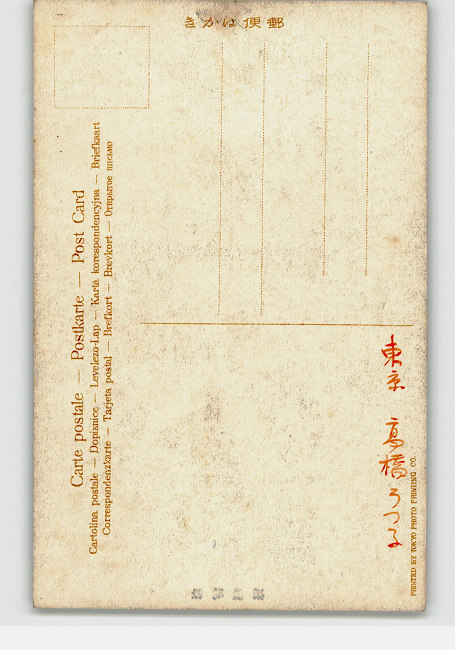 きかは便郵
Carte postale — Postkarte — Post Card
Cartolina postale — Dopisnice — Levelezo-Lap — Karta korespondencyjna — Briefkaart
Correspondenzkarte — Tarjeta postal — Brefkort — Brevkort — Открытое письмо
東京 高橋
PRINTED BY TOKYO PHOTO PRINTING CO.